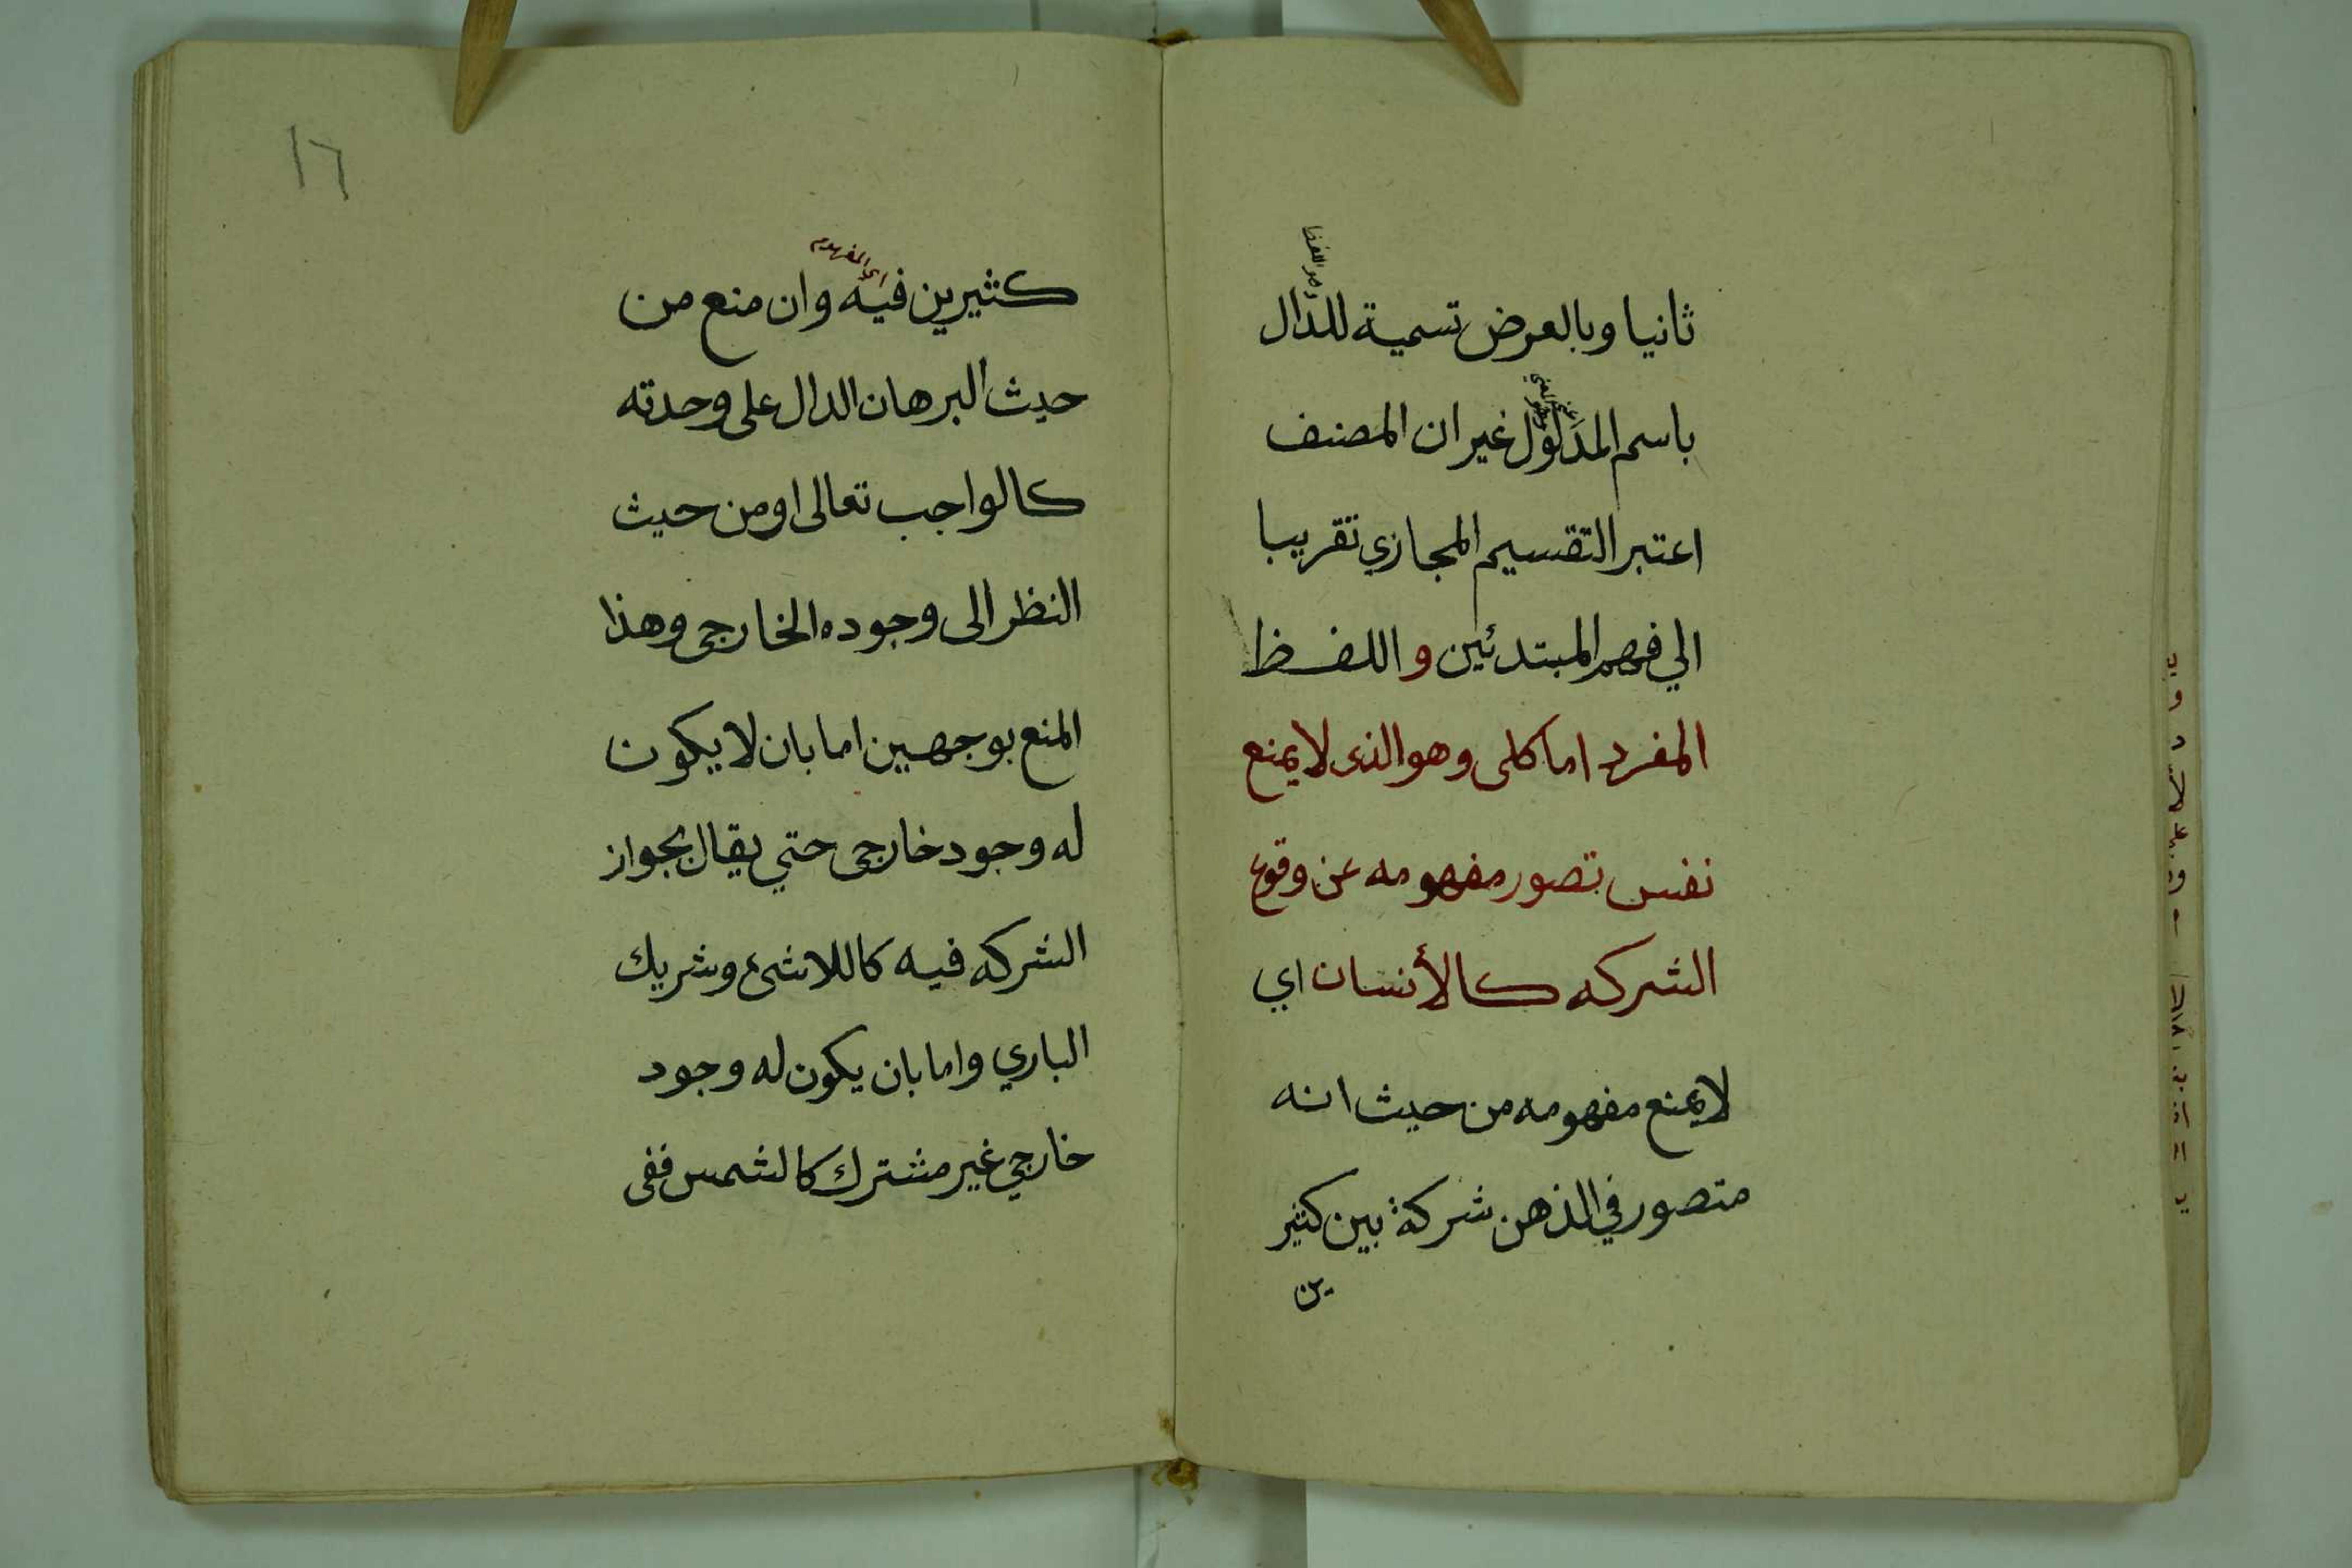 ثانيا وبالعرض تسمية للدال
باسم المدلول غير ان المصنف
اعتبر التقسيم المجازي تقريبا
الي فهم المبتدئين و اللفظ
المفرد اما كلى وهو الذى لا يمنع
نفس تصور مفهومه عن وقوع
الشركه كالأنسان اي
لا يمنع مفهومه من حيث انه
متصور في الذهن شركة بين كثير
ين
١٦
اي المفهوم
كثيرين فيه وان منع من
حيث البرهان الدال على وحدته
كالواجب تعالى او من حيث
النظر الى وجوده الخارجى وهذا
المنع بوجهين اما بان لا يكون
له وجود خارجى حتي يقال بجواز
الشركه فيه كاللاشئ وشريك
الباري واما بان يكون له وجود
خارجي غير مشترك كالشمس ففى